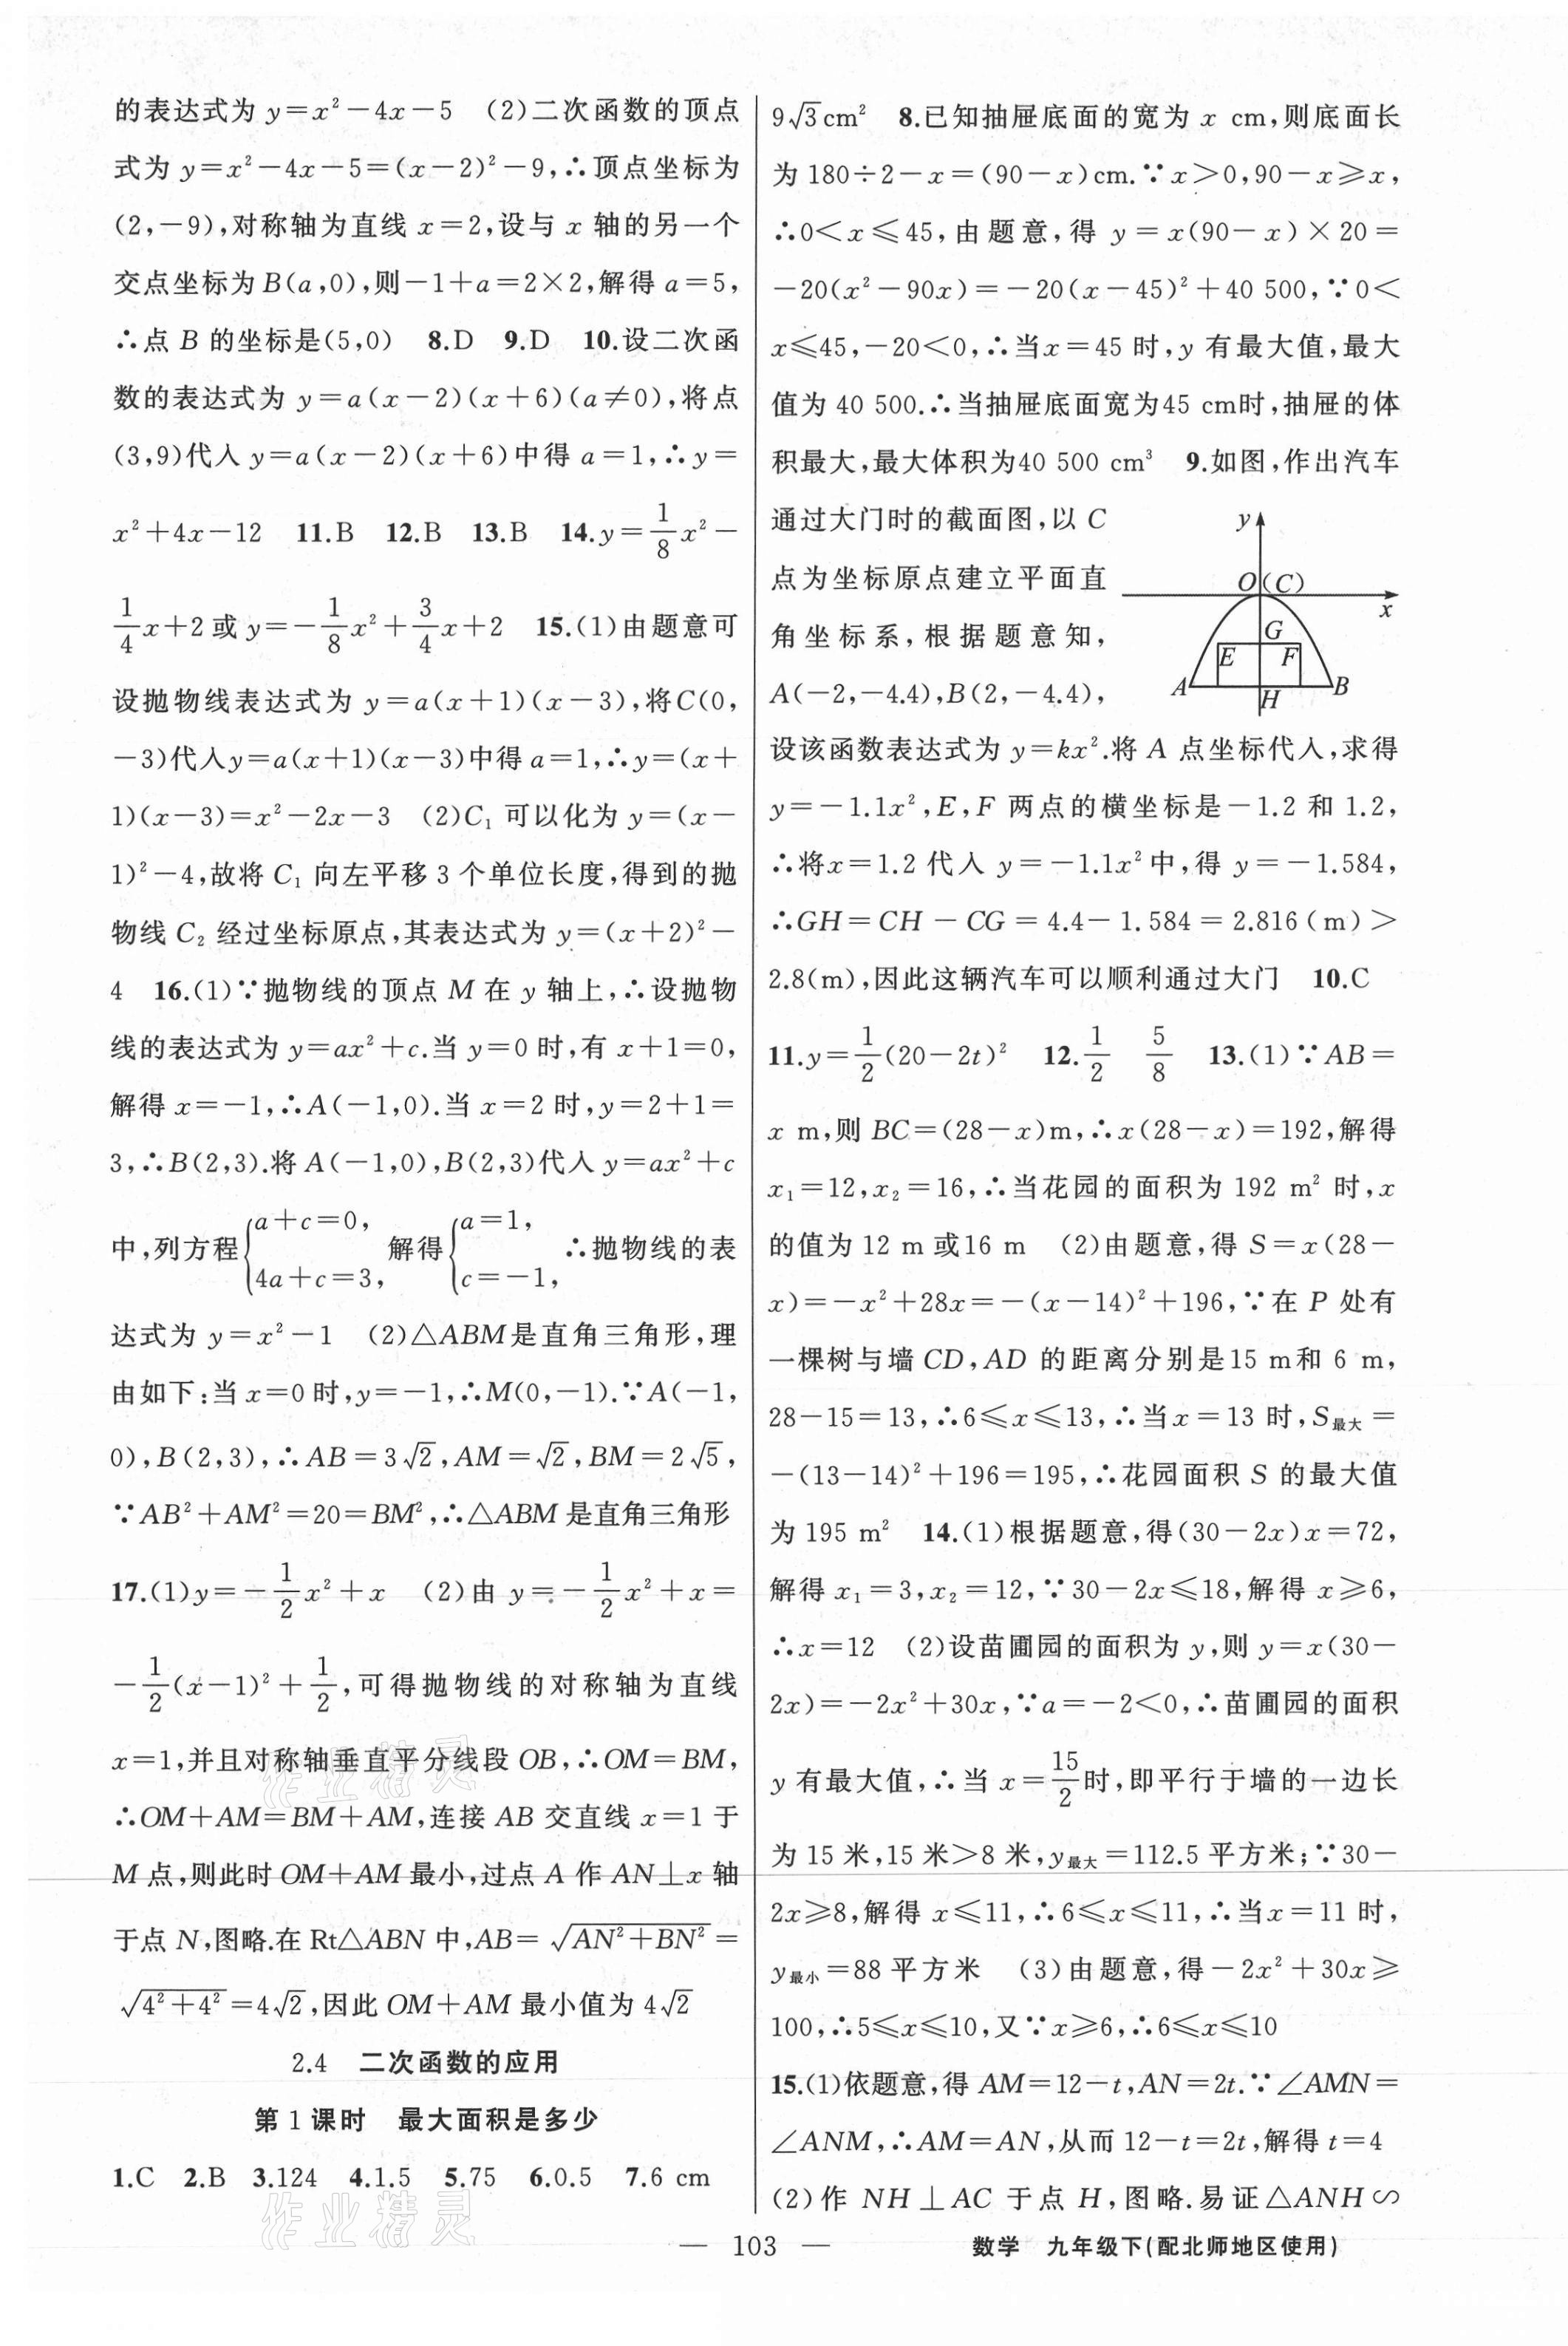 的表达式为 y=x²-4x-5 (2)二次函数的顶点
式为 y=x²-4x-5=(x-2)²-9,∴顶点坐标为
(2,-9),对称轴为直线 x=2,设与 x 轴的另一个
交点坐标为B(a,0),则-1+a=2×2,解得 a=5,
∴点 B 的坐标是(5,0) 8.D 9.D 10.设二次函
数的表达式为 y=a(x-2)(x+6)(a≠0),将点
(3,9)代入 y=a(x-2)(x+6)中得 a=1,∴y=
x²+4x-12 11.B 12.B 13.B 14.y=1/8x²-
1/4x+2或y=-1/8x²+3/4x+2 15.(1)由题意可
设抛物线表达式为 y=a(x+1)(x-3),将C(0,
-3)代入y=a(x+1)(x-3)中得a=1,∴y=(x+
1)(x-3)=x²-2x-3 (2)C₁ 可以化为 y=(x-
1)²-4,故将 C₁ 向左平移 3 个单位长度,得到的抛
物线 C₂ 经过坐标原点,其表达式为 y=(x+2)²-
4 16.(1)∵抛物线的顶点 M 在 y 轴上,∴设抛物
线的表达式为 y=ax²+c.当 y=0 时,有 x+1=0,
解得 x=-1,∴A(-1,0).当 x=2 时,y=2+1=
3,∴B(2,3).将A(-1,0),B(2,3)代入 y=ax²+c
中,列方程{a+c=0, 4a+c=3, 解得{a=1, c=-1, ∴抛物线的表
达式为 y=x²-1 (2)△ABM是直角三角形,理
由如下:当x=0时,y=-1,∴M(0,-1).∵A(-1,
0),B(2,3),∴AB=3√2,AM=√2,BM=2√5,
∵AB²+AM²=20=BM²,∴△ABM 是直角三角形
17.(1)y=-1/2x²+x (2)由 y=-1/2x²+x=
-1/2(x-1)²+1/2,可得抛物线的对称轴为直线
x=1,并且对称轴垂直平分线段 OB,∴OM=BM,
∴OM+AM=BM+AM,连接 AB 交直线 x=1 于
M 点,则此时 OM+AM 最小,过点 A 作 AN⊥x 轴
于点 N,图略.在 Rt△ABN 中,AB=√(AN²+BN²)=
√(4²+4²)=4√2,因此 OM+AM 最小值为 4√2
2.4 二次函数的应用
第 1 课时 最大面积是多少
1.C 2.B 3.124 4.1.5 5.75 6.0.5 7.6 cm
9√3cm² 8.已知抽屉底面的宽为 x cm,则底面长
为 180÷2-x=(90-x)cm.∵x>0,90-x≥x,
∴0<x≤45,由题意,得 y=x(90-x)×20=
-20(x²-90x)=-20(x-45)²+40 500,∵0<
x≤45,-20<0,∴当x=45 时,y 有最大值,最大
值为 40 500.∴当抽屉底面宽为45 cm时,抽屉的体
积最大,最大体积为40 500 cm³ 9.如图,作出汽车
通过大门时的截面图,以 C
点为坐标原点建立平面直
角坐标系,根据题意知,
A(-2,-4.4),B(2,-4.4),
y
O(C)
x
G
E F
A H B
设该函数表达式为 y=kx².将 A 点坐标代入,求得
y=-1.1x²,E,F 两点的横坐标是-1.2 和 1.2,
∴将x=1.2 代入 y=-1.1x²中,得 y=-1.584,
∴GH=CH-CG=4.4-1.584=2.816(m)>
2.8(m),因此这辆汽车可以顺利通过大门 10.C
11.y=1/2(20-2t)² 12.1/2 5/8 13.(1)∵AB=
x m,则BC=(28-x)m,∴x(28-x)=192,解得
x₁=12,x₂=16,∴当花园的面积为 192 m² 时,x
的值为 12 m 或16 m (2)由题意,得 S=x(28-
x)=-x²+28x=-(x-14)²+196,∵在 P 处有
一棵树与墙 CD,AD 的距离分别是15 m和 6 m,
28-15=13,∴6≤x≤13,∴当x=13 时,S最大=
-(13-14)²+196=195,∴花园面积 S 的最大值
为 195 m² 14.(1)根据题意,得(30-2x)x=72,
解得 x₁=3,x₂=12,∵30-2x≤18,解得 x≥6,
∴x=12 (2)设苗圃园的面积为 y,则 y=x(30-
2x)=-2x²+30x,∵a=-2<0,∴苗圃园的面积
y 有最大值,∴当 x=15/2时,即平行于墙的一边长
为 15 米,15 米>8 米,y最大=112.5 平方米;∵30-
2x≥8,解得 x≤11,∴6≤x≤11,∴当x=11 时,
y最小=88 平方米 (3)由题意,得-2x²+30x≥
100,∴5≤x≤10,又∵x≥6,∴6≤x≤10
15.(1)依题意,得 AM=12-t,AN=2t.∵∠AMN=
∠ANM,∴AM=AN,从而 12-t=2t,解得 t=4
(2)作 NH⊥AC 于点 H,图略.易证△ANH∽
作业精灵
作业精灵
— 103 — 数学 九年级下(配北师地区使用)